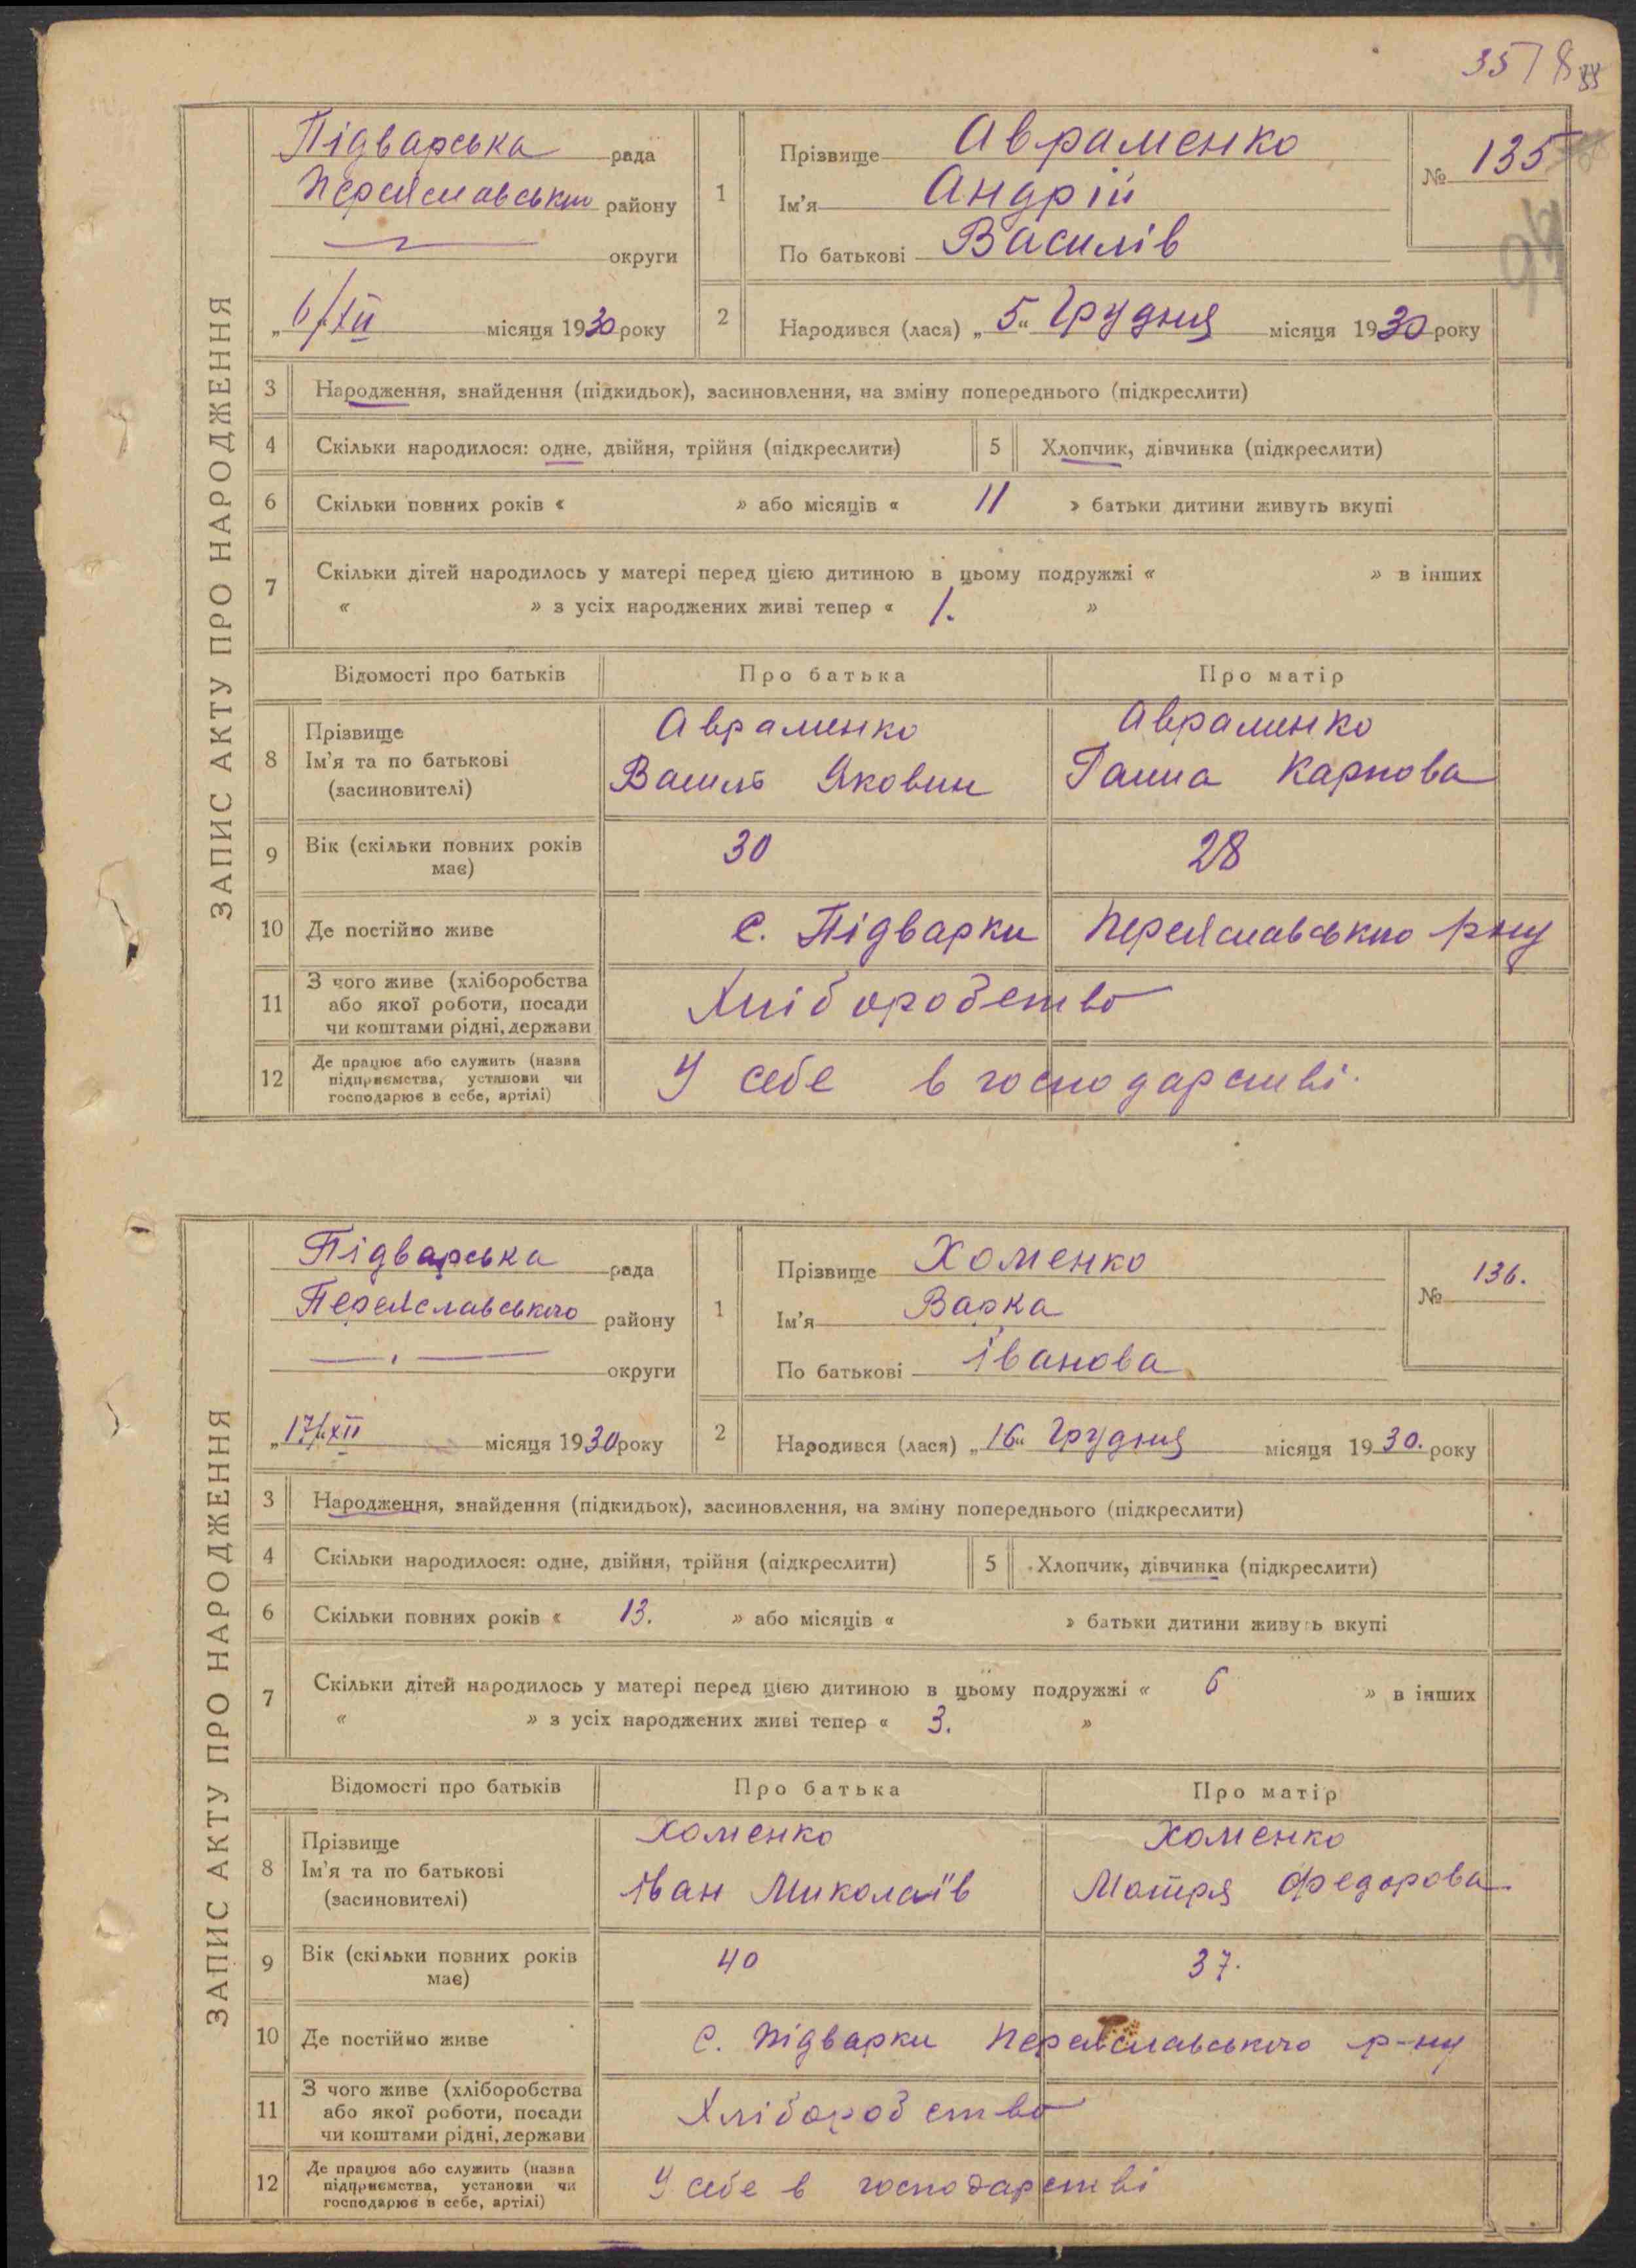 35
ЗАПИС АКТУ ПРО НАРОДЖЕННЯ
Підварська рада
Переяславський району
округи
„6/XII місяця 1930 року
1
Прізвище Авраменко
Ім'я Андрій
По батькові Василів
№ 135
94
2
Народився (лася) „5“ Грудня місяця 1930 року
3 Народження, знайдення (підкидьок), засиновлення, на зміну попереднього (підкреслити)
4 Скільки народилося: одне, двійня, трійня (підкреслити) 5 Хлопчик, дівчинка (підкреслити)
6 Скільки повних років « » або місяців « 11 » батьки дитини живуть вкупі
7 Скільки дітей народилось у матері перед цією дитиною в цьому подружжі « » в інших
« » з усіх народжених живі тепер « 1. »
Відомості про батьків Про батька Про матір
8 Прізвище
Ім'я та по батькові
(засиновителі)
Авраменко
Василь Яковин
Авраменко
Ганна Карпова
9 Вік (скільки повних років
має)
30 28
10 Де постійно живе с. Підварки Переяславського р-ну
11 З чого живе (хліборобства
або якої роботи, посади
чи коштами рідні, держави
Хліборобство
12 Де працює або служить (назва
підприємства, установи чи
господарює в себе, артілі)
У себе в господарстві.
ЗАПИС АКТУ ПРО НАРОДЖЕННЯ
Підварська рада
Переяславського району
округи
„17/XII місяця 1930 року
1
Прізвище Хоменко
Ім'я Варка
По батькові Іванова
№ 136.
2
Народився (лася) „16“ Грудня місяця 1930. року
3 Народження, знайдення (підкидьок), засиновлення, на зміну попереднього (підкреслити)
4 Скільки народилося: одне, двійня, трійня (підкреслити) 5 Хлопчик, дівчинка (підкреслити)
6 Скільки повних років « 13. » або місяців « » батьки дитини живуть вкупі
7 Скільки дітей народилось у матері перед цією дитиною в цьому подружжі « 6 » в інших
« » з усіх народжених живі тепер « 3. »
Відомості про батьків Про батька Про матір
8 Прізвище
Ім'я та по батькові
(засиновителі)
Хоменко
Іван Миколаїв
Хоменко
Мотря Федорова
9 Вік (скільки повних років
має)
40 37.
10 Де постійно живе с. Підварки Переяславського р-ну
11 З чого живе (хліборобства
або якої роботи, посади
чи коштами рідні, держави
Хліборобство
12 Де працює або служить (назва
підприємства, установи чи
господарює в себе, артілі)
У себе в господарстві